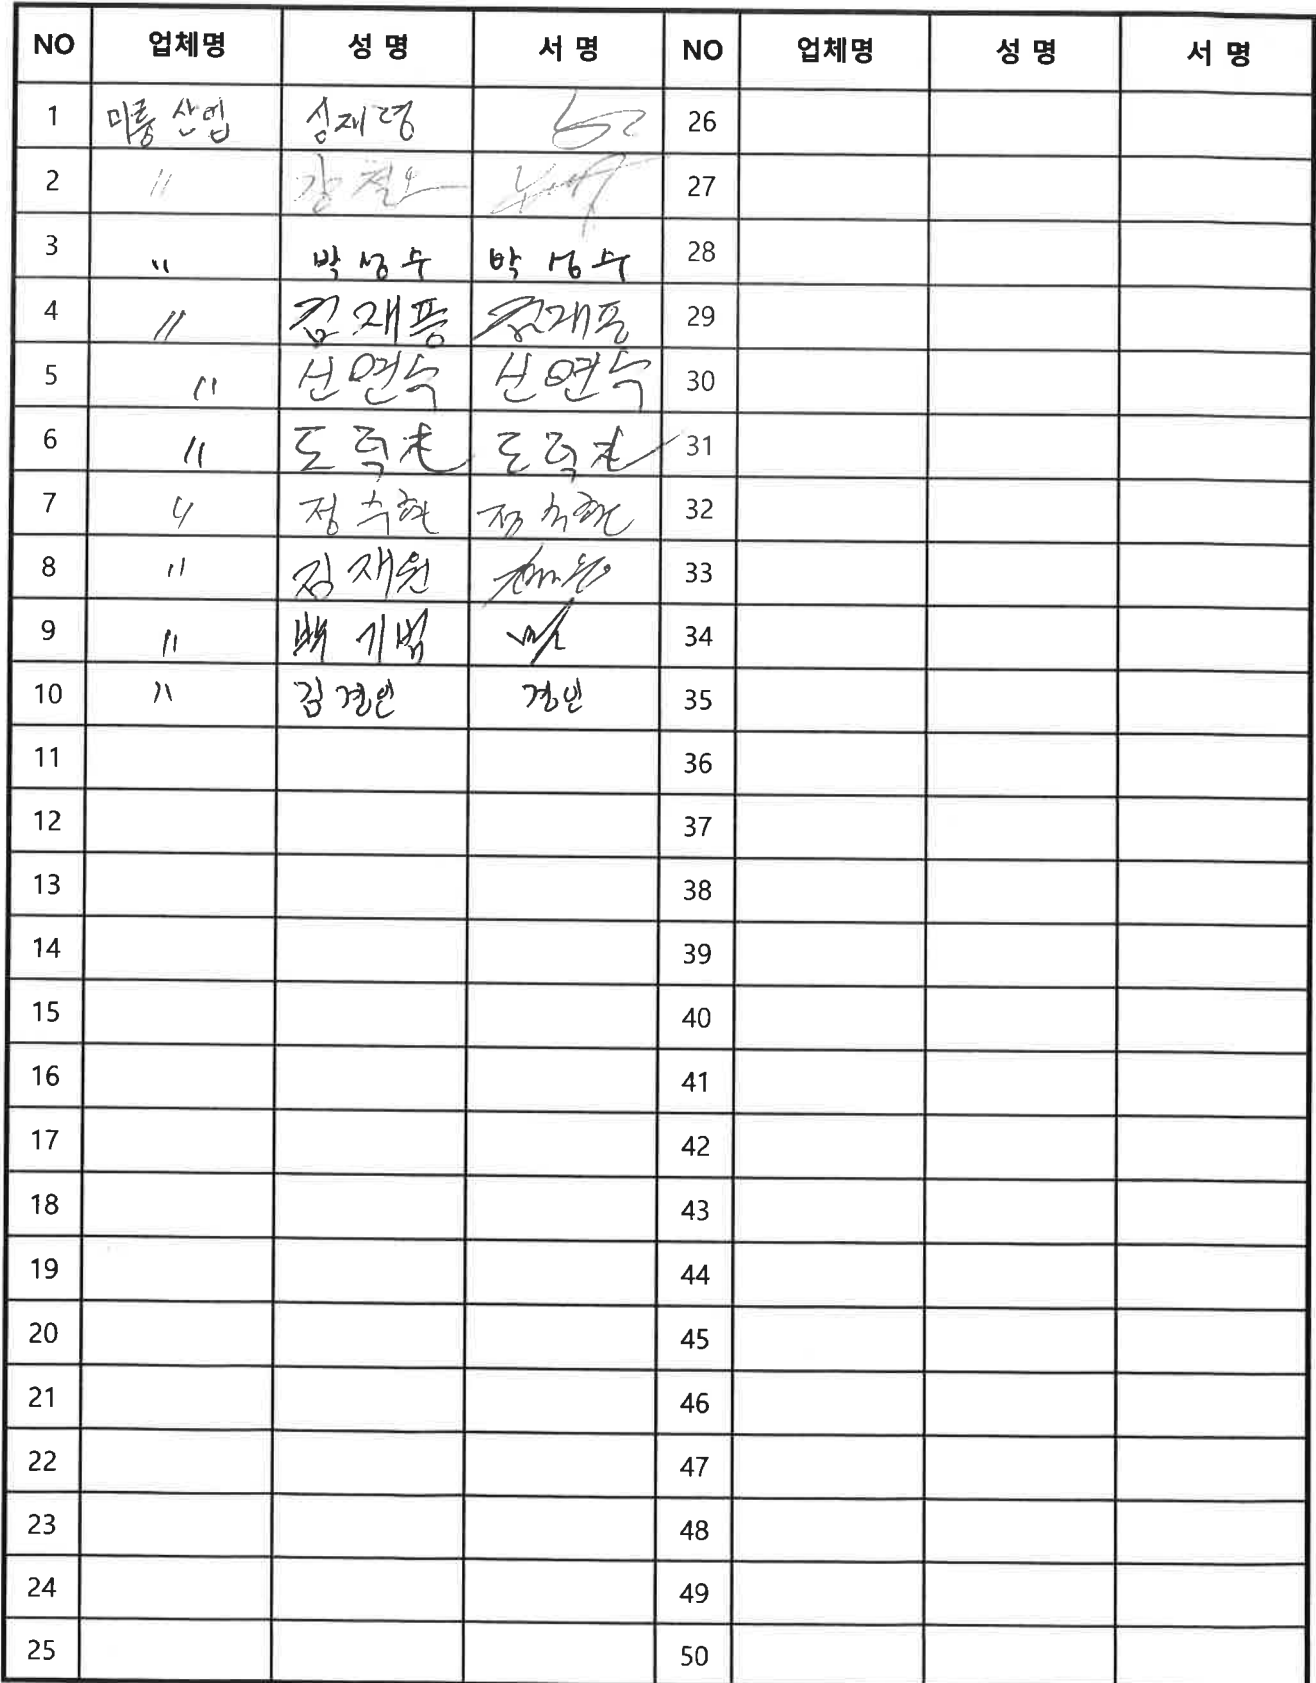 NO 업체명 성 명 서 명 NO 업체명 성 명 서 명
1 미룡 산업 심재령 26
2 〃 27
3 〃 박성수 박성수 28
4 〃 김재풍 김재풍 29
5 〃 신연숙 신연숙 30
6 〃 도덕 도덕 31
7 〃 정수현 정수현 32
8 〃 김재원 33
9 〃 백기범 34
10 〃 김경인 경인 35
11 36
12 37
13 38
14 39
15 40
16 41
17 42
18 43
19 44
20 45
21 46
22 47
23 48
24 49
25 50